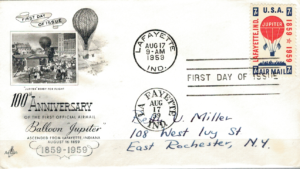 FIRST DAY OF ISSUE
100th ANNIVERSARY
OF THE FIRST OFFICIAL AIRMAIL
Balloon "Jupiter"
ASCENDED FROM LAFAYETTE, INDIANA
AUGUST 17, 1859
1859-1959
LAFAYETTE
AUG 17
9 -AM
1959
IND.
U.S.A.
7¢ 7¢
JUPITER
LAFAYETTE, IND.
1859 1959
AIR MAIL
FIRST DAY OF ISSUE
LA FAYETTE
AUG
IND
J. Miller
108 West Ivy St
East Rochester, N.Y.